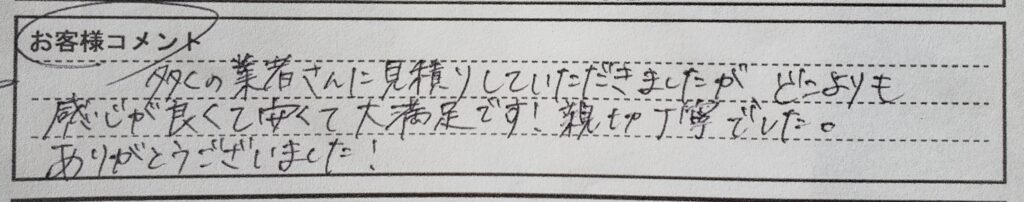 お客様コメント
多くの業者さんに見積りしていただきましたが、どこよりも
感じが良くて安くて大満足です!親切丁寧でした。
ありがとうございました!